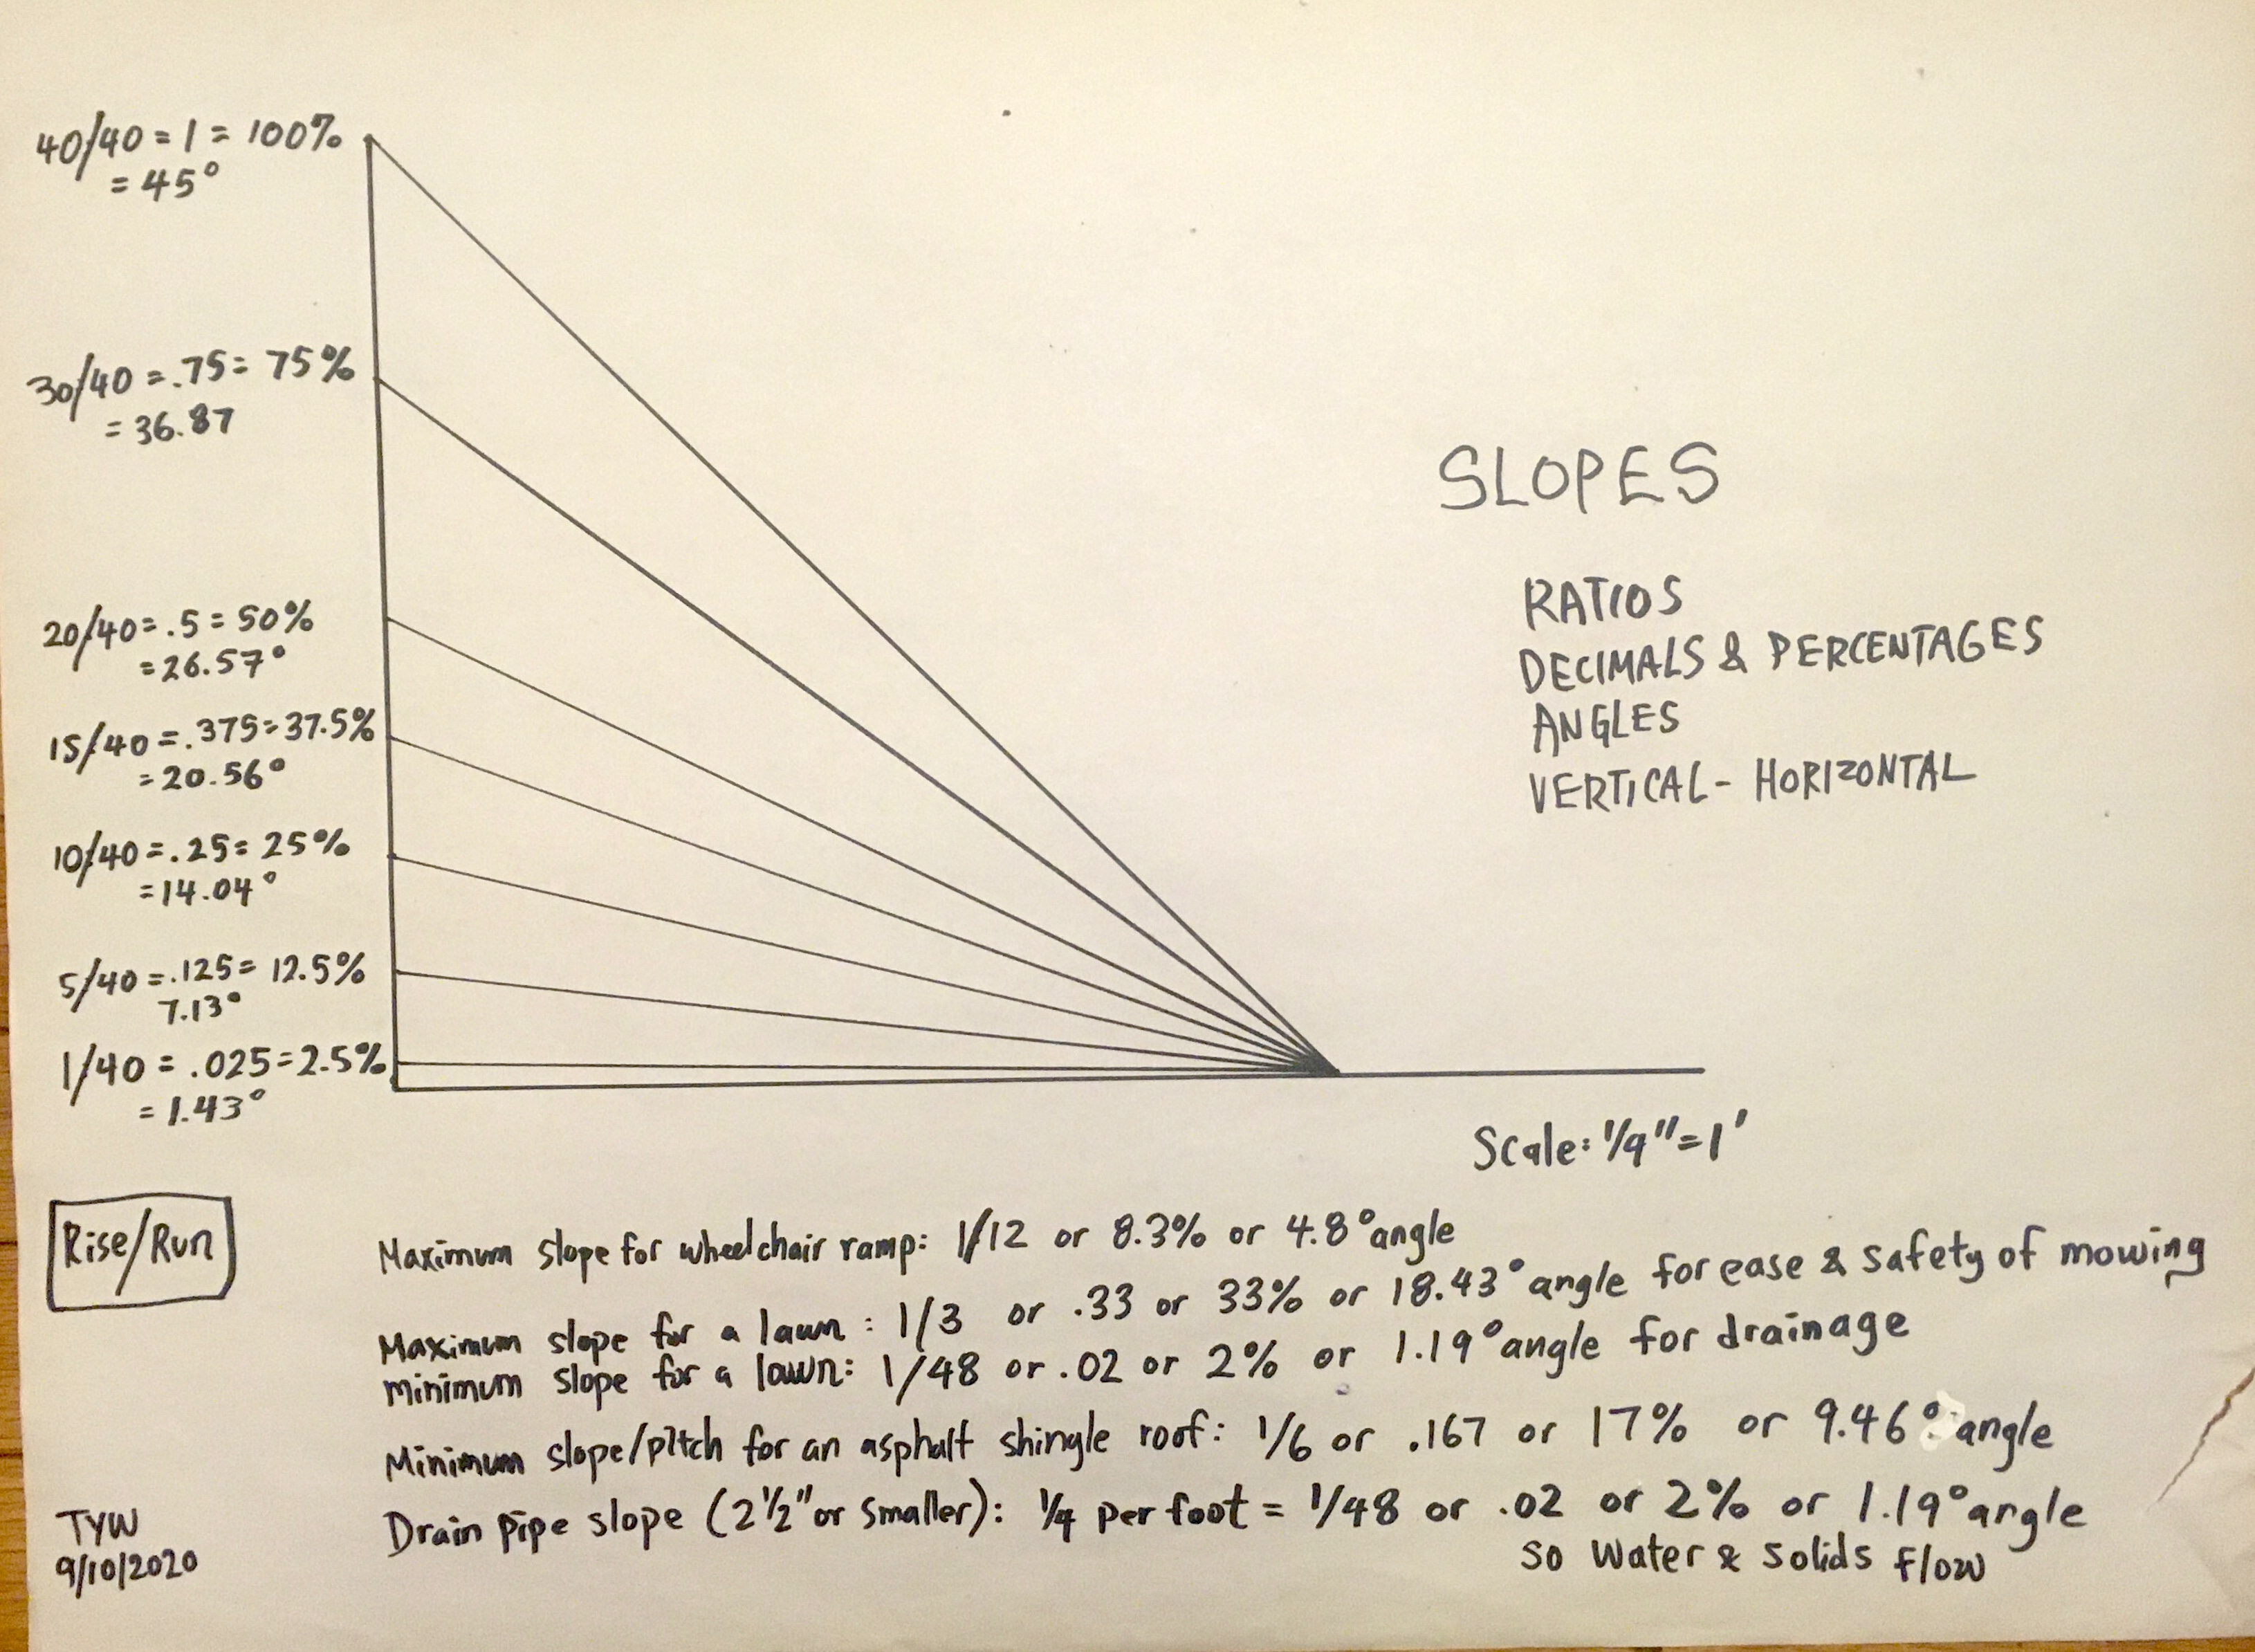 40/40 = 1 = 100%
= 45°
30/40 = .75 = 75%
= 36.87
20/40 = .5 = 50%
= 26.57°
15/40 = .375 = 37.5%
= 20.56°
10/40 = .25 = 25%
= 14.04°
5/40 = .125 = 12.5%
7.13°
1/40 = .025 = 2.5%
= 1.43°
SLOPES
RATIOS
DECIMALS & PERCENTAGES
ANGLES
VERTICAL - HORIZONTAL
Scale: 1/4" = 1'
Rise/Run
Maximum slope for wheelchair ramp: 1/12 or 8.3% or 4.8° angle
Maximum slope for a lawn: 1/3 or .33 or 33% or 18.43° angle for ease & safety of mowing
minimum slope for a lawn: 1/48 or .02 or 2% or 1.19° angle for drainage
Minimum slope/pitch for an asphalt shingle roof: 1/6 or .167 or 17% or 9.46° angle
Drain pipe slope (2 1/2" or smaller): 1/4 per foot = 1/48 or .02 or 2% or 1.19° angle
so Water & solids flow
TYW
9/10/2020